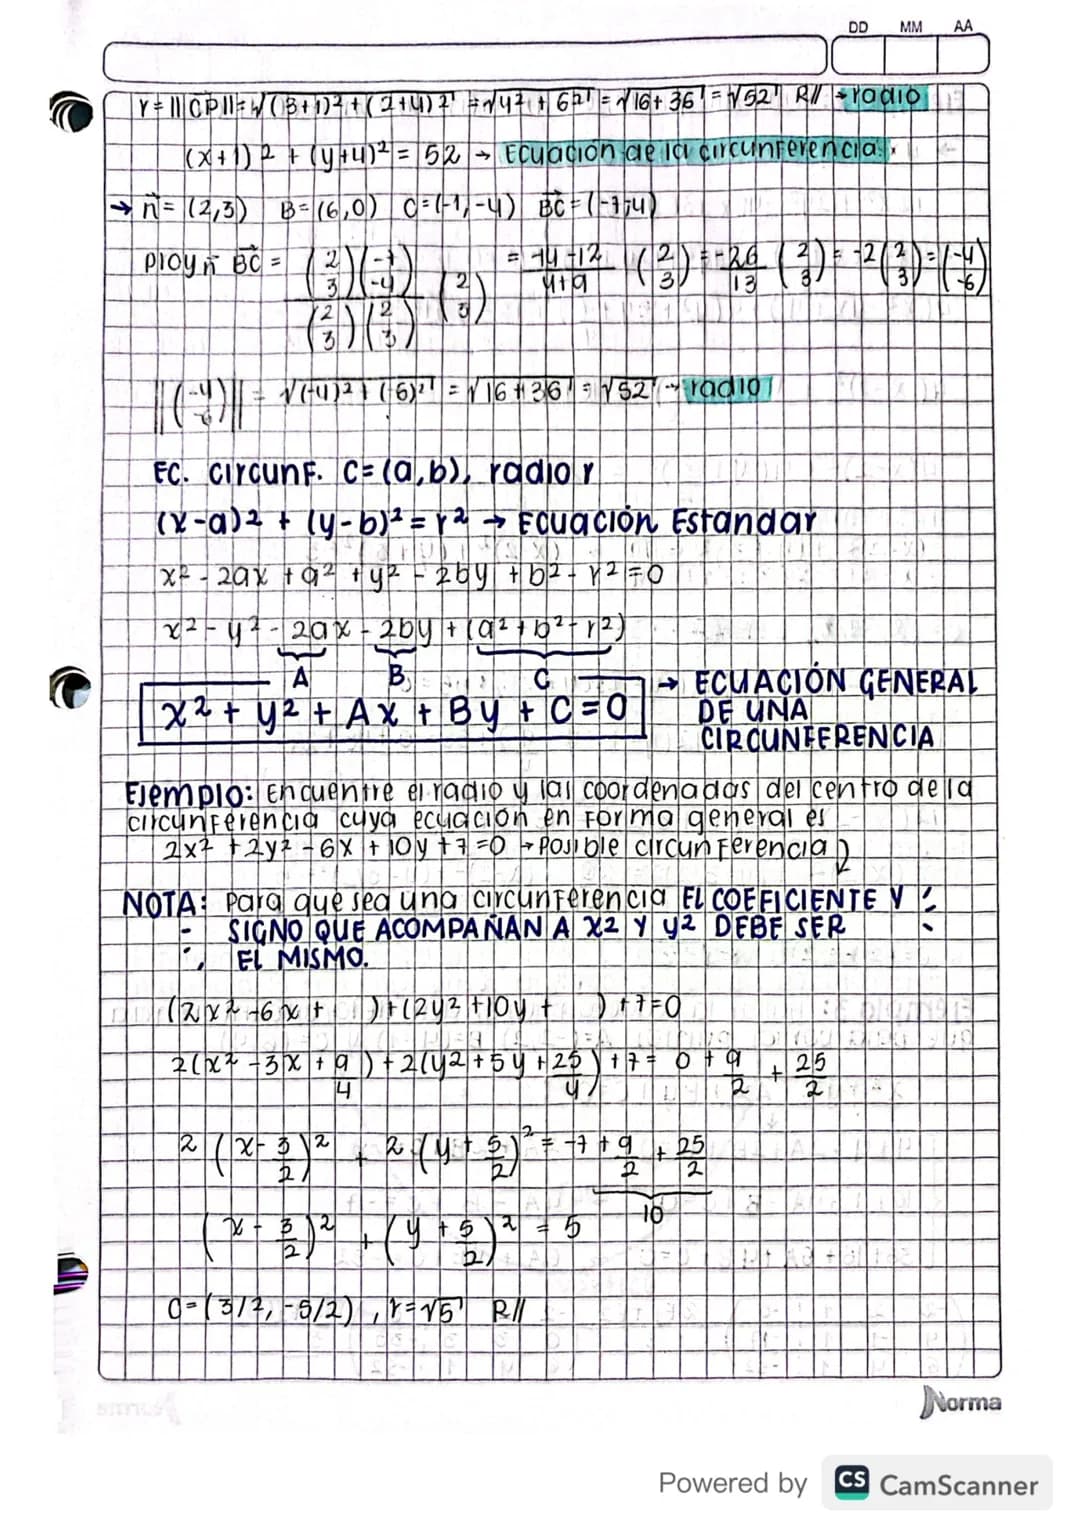 DD MM AA
r = ||CP|| = √(3+1)² + (2+4)² = √4² + 6² = √16+36 = √52 R// → radio
(x+1)² + (y+4)² = 52 → Ecuación de la circunferencia.
→ n⃗ = (2,3) B=(6,0) C=(-1,-4) BC⃗ = (-7,-4)
Proy n⃗ BC⃗ = (2 3)(-7 -4) / (2 3)(2 3) (2 3) = -14-12 / 4+9 (2 3) = -26/13 (2 3) = -2(2 3) = (-4 -6)
||(-4 -6)|| = √(-4)² + (-6)² = √16+36 = √52 → radio
EC. circunf. C=(a,b), radio r
(x-a)² + (y-b)² = r² → Ecuación Estandar
x² - 2ax + a² + y² - 2by + b² - r² = 0
x² - y² - 2ax - 2by + (a² + b² - r²)
A B C
x² + y² + Ax + By + C = 0 → ECUACIÓN GENERAL
DE UNA
CIRCUNFERENCIA
Ejemplo: Encuentre el radio y las coordenadas del centro de la
circunferencia cuya ecuación en forma general es
2x² + 2y² - 6x + 10y + 7 = 0 → Posible circunferencia
NOTA: Para que sea una circunferencia EL COEFICIENTE Y
SIGNO QUE ACOMPAÑAN A x2 Y y2 DEBE SER
EL MISMO.
(2x² - 6x + ) + (2y² + 10y + ) + 7 = 0
2(x² - 3x + 9/4) + 2(y2 + 5y + 25/4) + 7 = 0 + 9/2 + 25/2
2(x - 3/2)² + 2(y + 5/2)² = -7 + 9/2 + 25/2
10
(x - 3/2)² + (y + 5/2)² = 5
C = (3/2, -5/2), r = √5 R//
Norma
Powered by CS CamScanner